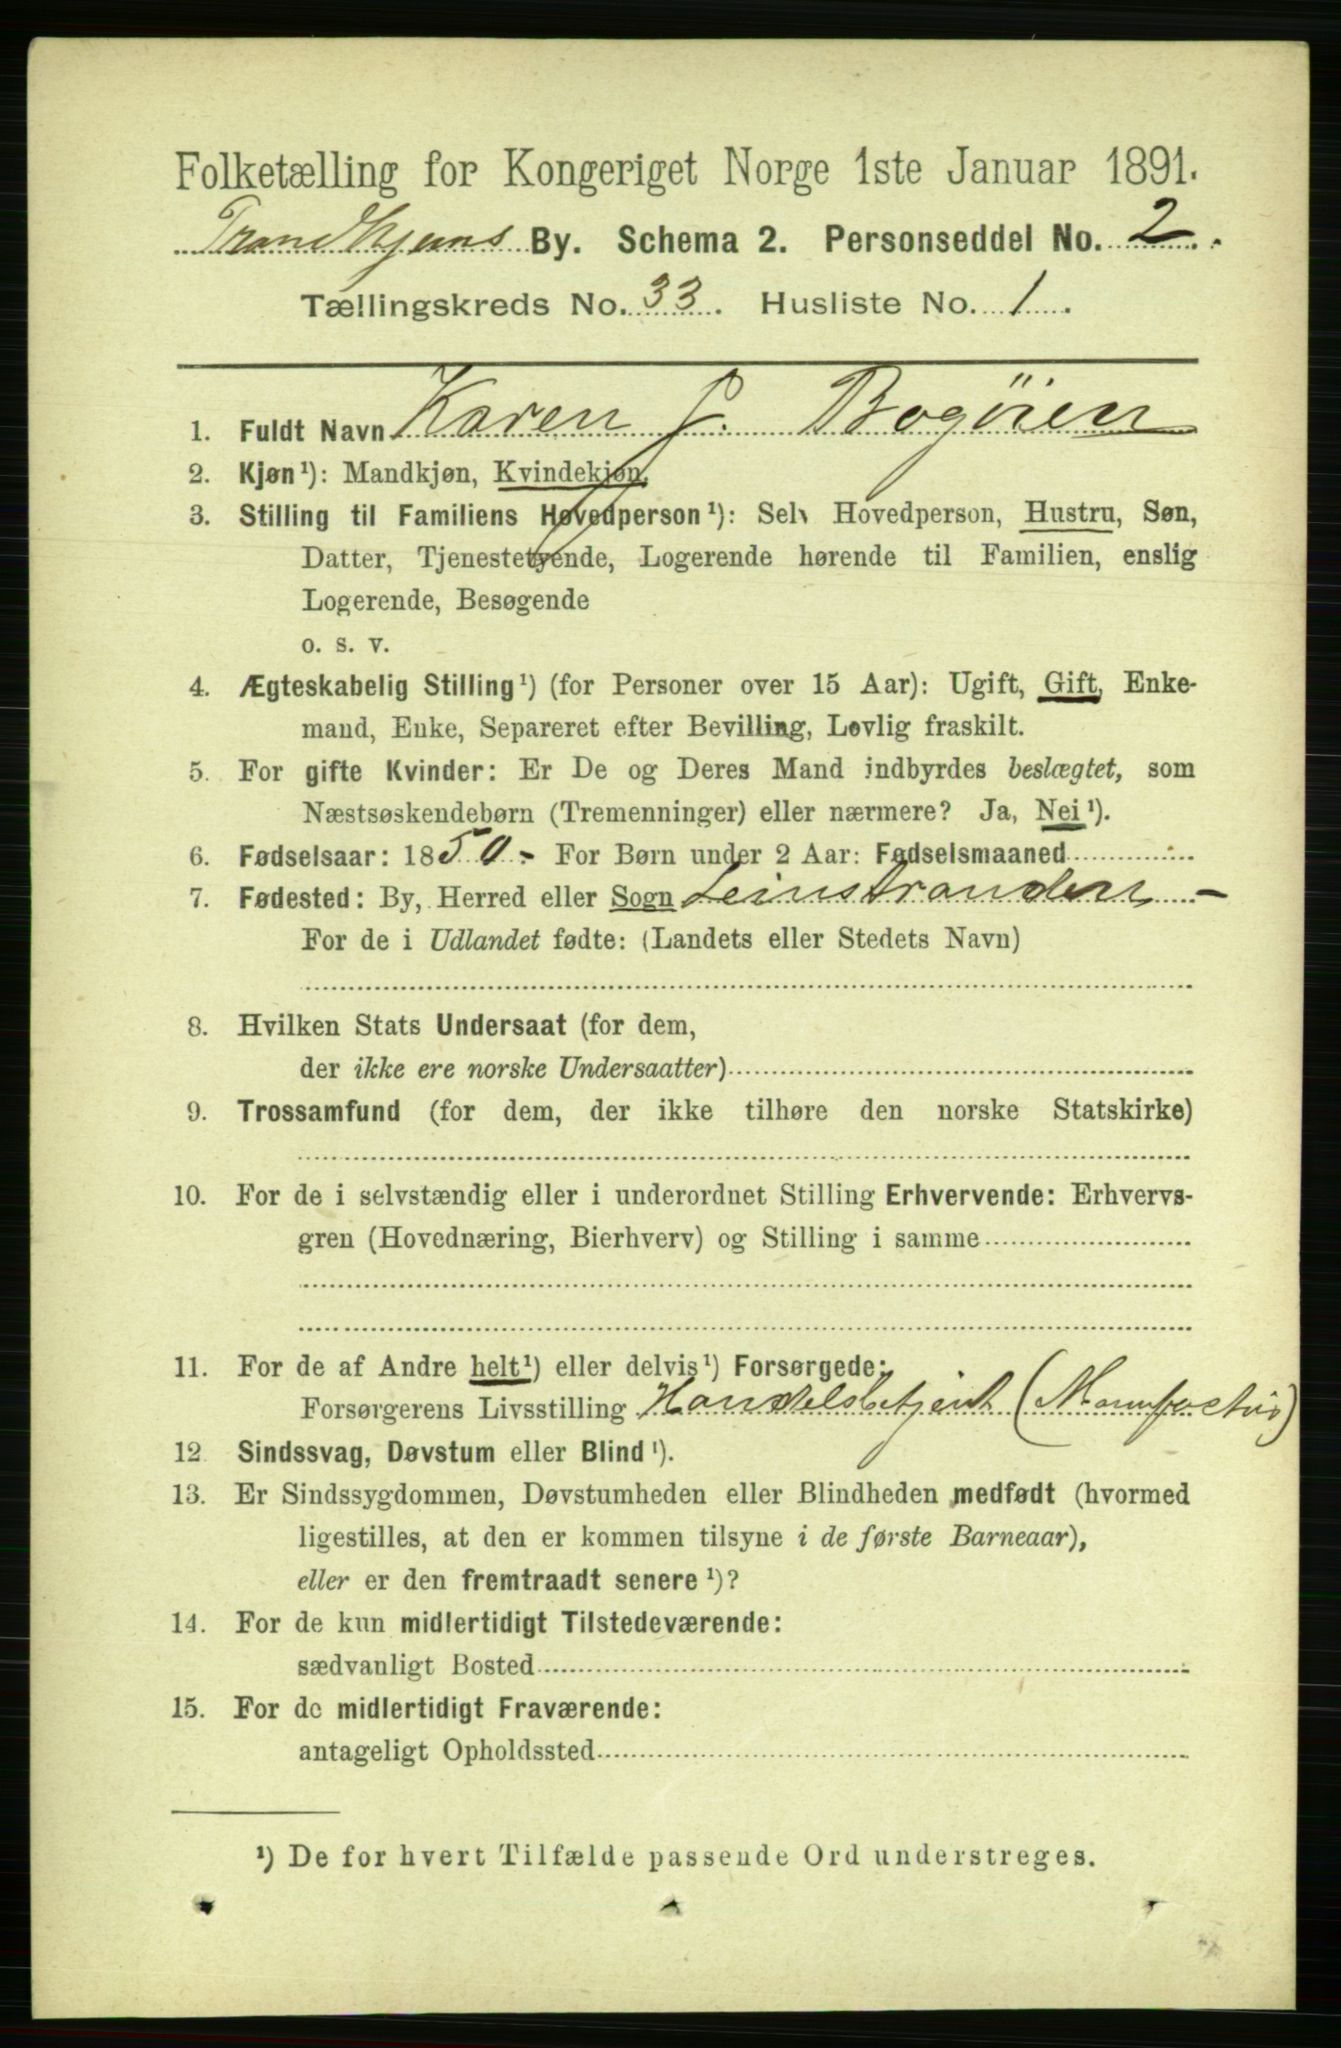 Folketælling for Kongeriget Norge 1ste Januar 1891.
Trondhjems By. Schema 2. Personseddel No. 2.
Tællingskreds No. 33. Husliste No. 1.
1. Fuldt Navn Karen J. Bogöien
2. Kjøn¹): Mandkjøn, Kvindekjøn.
3. Stilling til Familiens Hovedperson¹): Selv Hovedperson, Hustru, Søn,
Datter, Tjenestetyende, Logerende hørende til Familien, enslig
Logerende, Besøgende
o. s. v.
4. Ægteskabelig Stilling¹) (for Personer over 15 Aar): Ugift, Gift, Enke-
mand, Enke, Separeret efter Bevilling, Lovlig fraskilt.
5. For gifte Kvinder: Er De og Deres Mand indbyrdes beslægtet, som
Næstsøskendebørn (Tremenninger) eller nærmere? Ja, Nei¹).
6. Fødselsaar: 1850.- For Børn under 2 Aar: Fødselsmaaned
7. Fødested: By, Herred eller Sogn Leinstranden -
For de i Udlandet fødte: (Landets eller Stedets Navn)
8. Hvilken Stats Undersaat (for dem,
der ikke ere norske Undersaatter)
9. Trossamfund (for dem, der ikke tilhøre den norske Statskirke)
10. For de i selvstændig eller i underordnet Stilling Erhvervende: Erhvervs-
gren (Hovednæring, Bierhverv) og Stilling i samme
11. For de af Andre helt¹) eller delvis¹) Forsørgede:
Forsørgerens Livsstilling Handelsbetjent (Manufactur)
12. Sindssvag, Døvstum eller Blind¹).
13. Er Sindssygdommen, Døvstumheden eller Blindheden medfødt (hvormed
ligestilles, at den er kommen tilsyne i de første Barneaar),
eller er den fremtraadt senere¹)?
14. For de kun midlertidigt Tilstedeværende:
sædvanligt Bosted
15. For de midlertidigt Fraværende:
antageligt Opholdssted
¹) De for hvert Tilfælde passende Ord understreges.